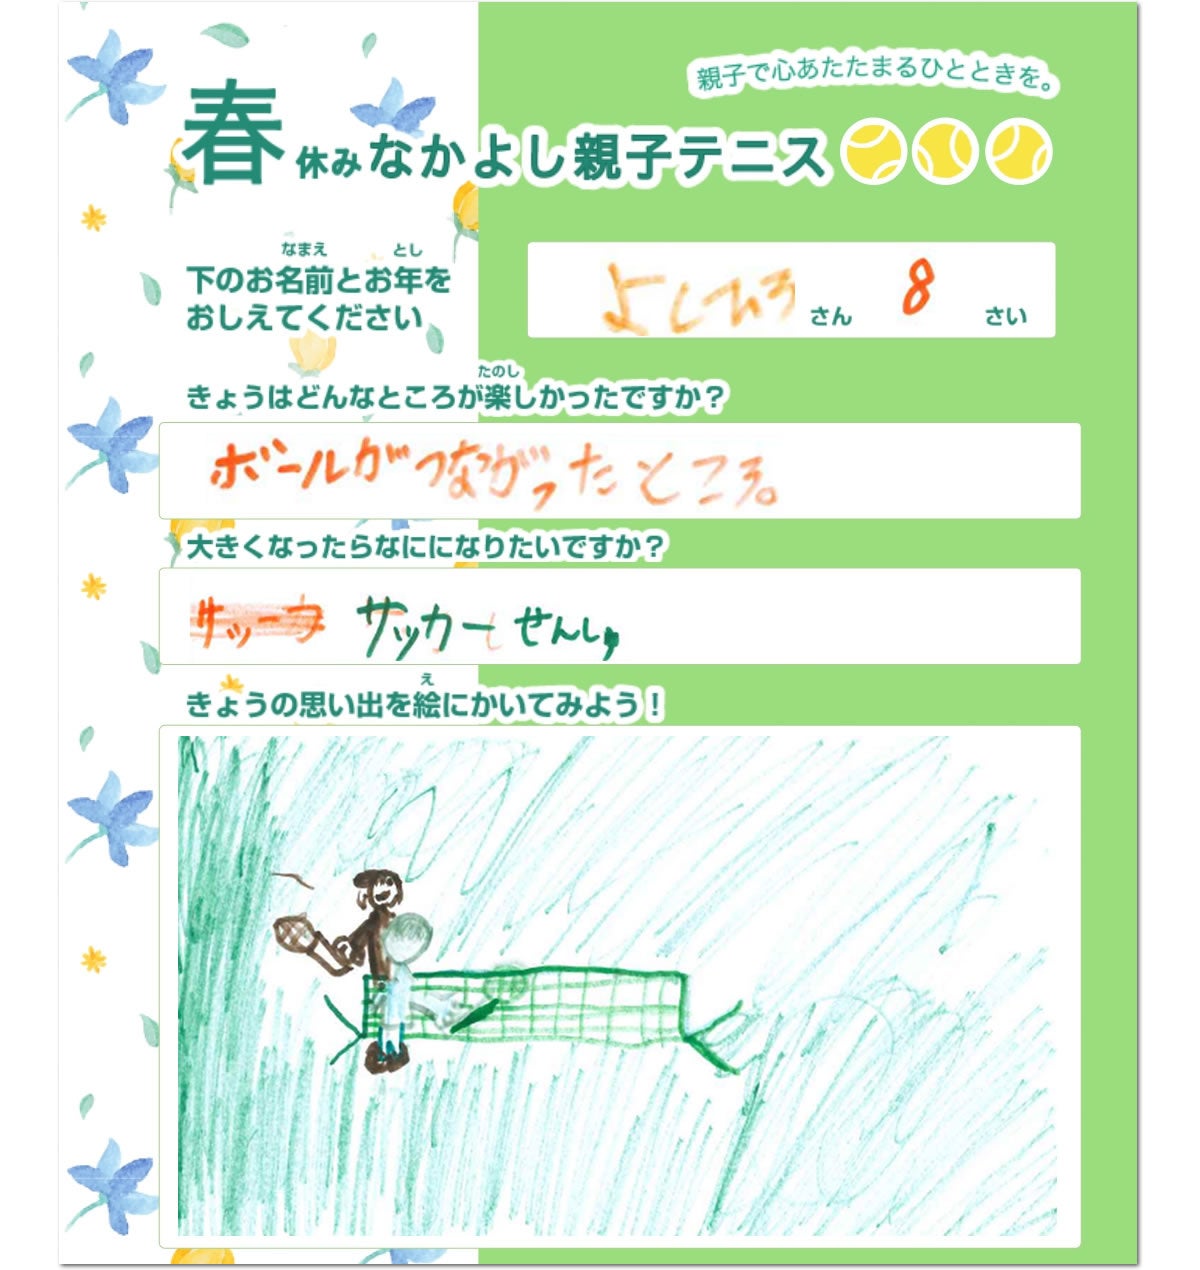 親子で心あたたまるひとときを。
春休みなかよし親子テニス
なまえ とし
下のお名前とお年を
おしえてください
よしひろ さん 8 さい
たのし
きょうはどんなところが楽しかったですか?
ボールがつながったところ。
大きくなったらなにになりたいですか?
サッカー せんし
え
きょうの思い出を絵にかいてみよう!